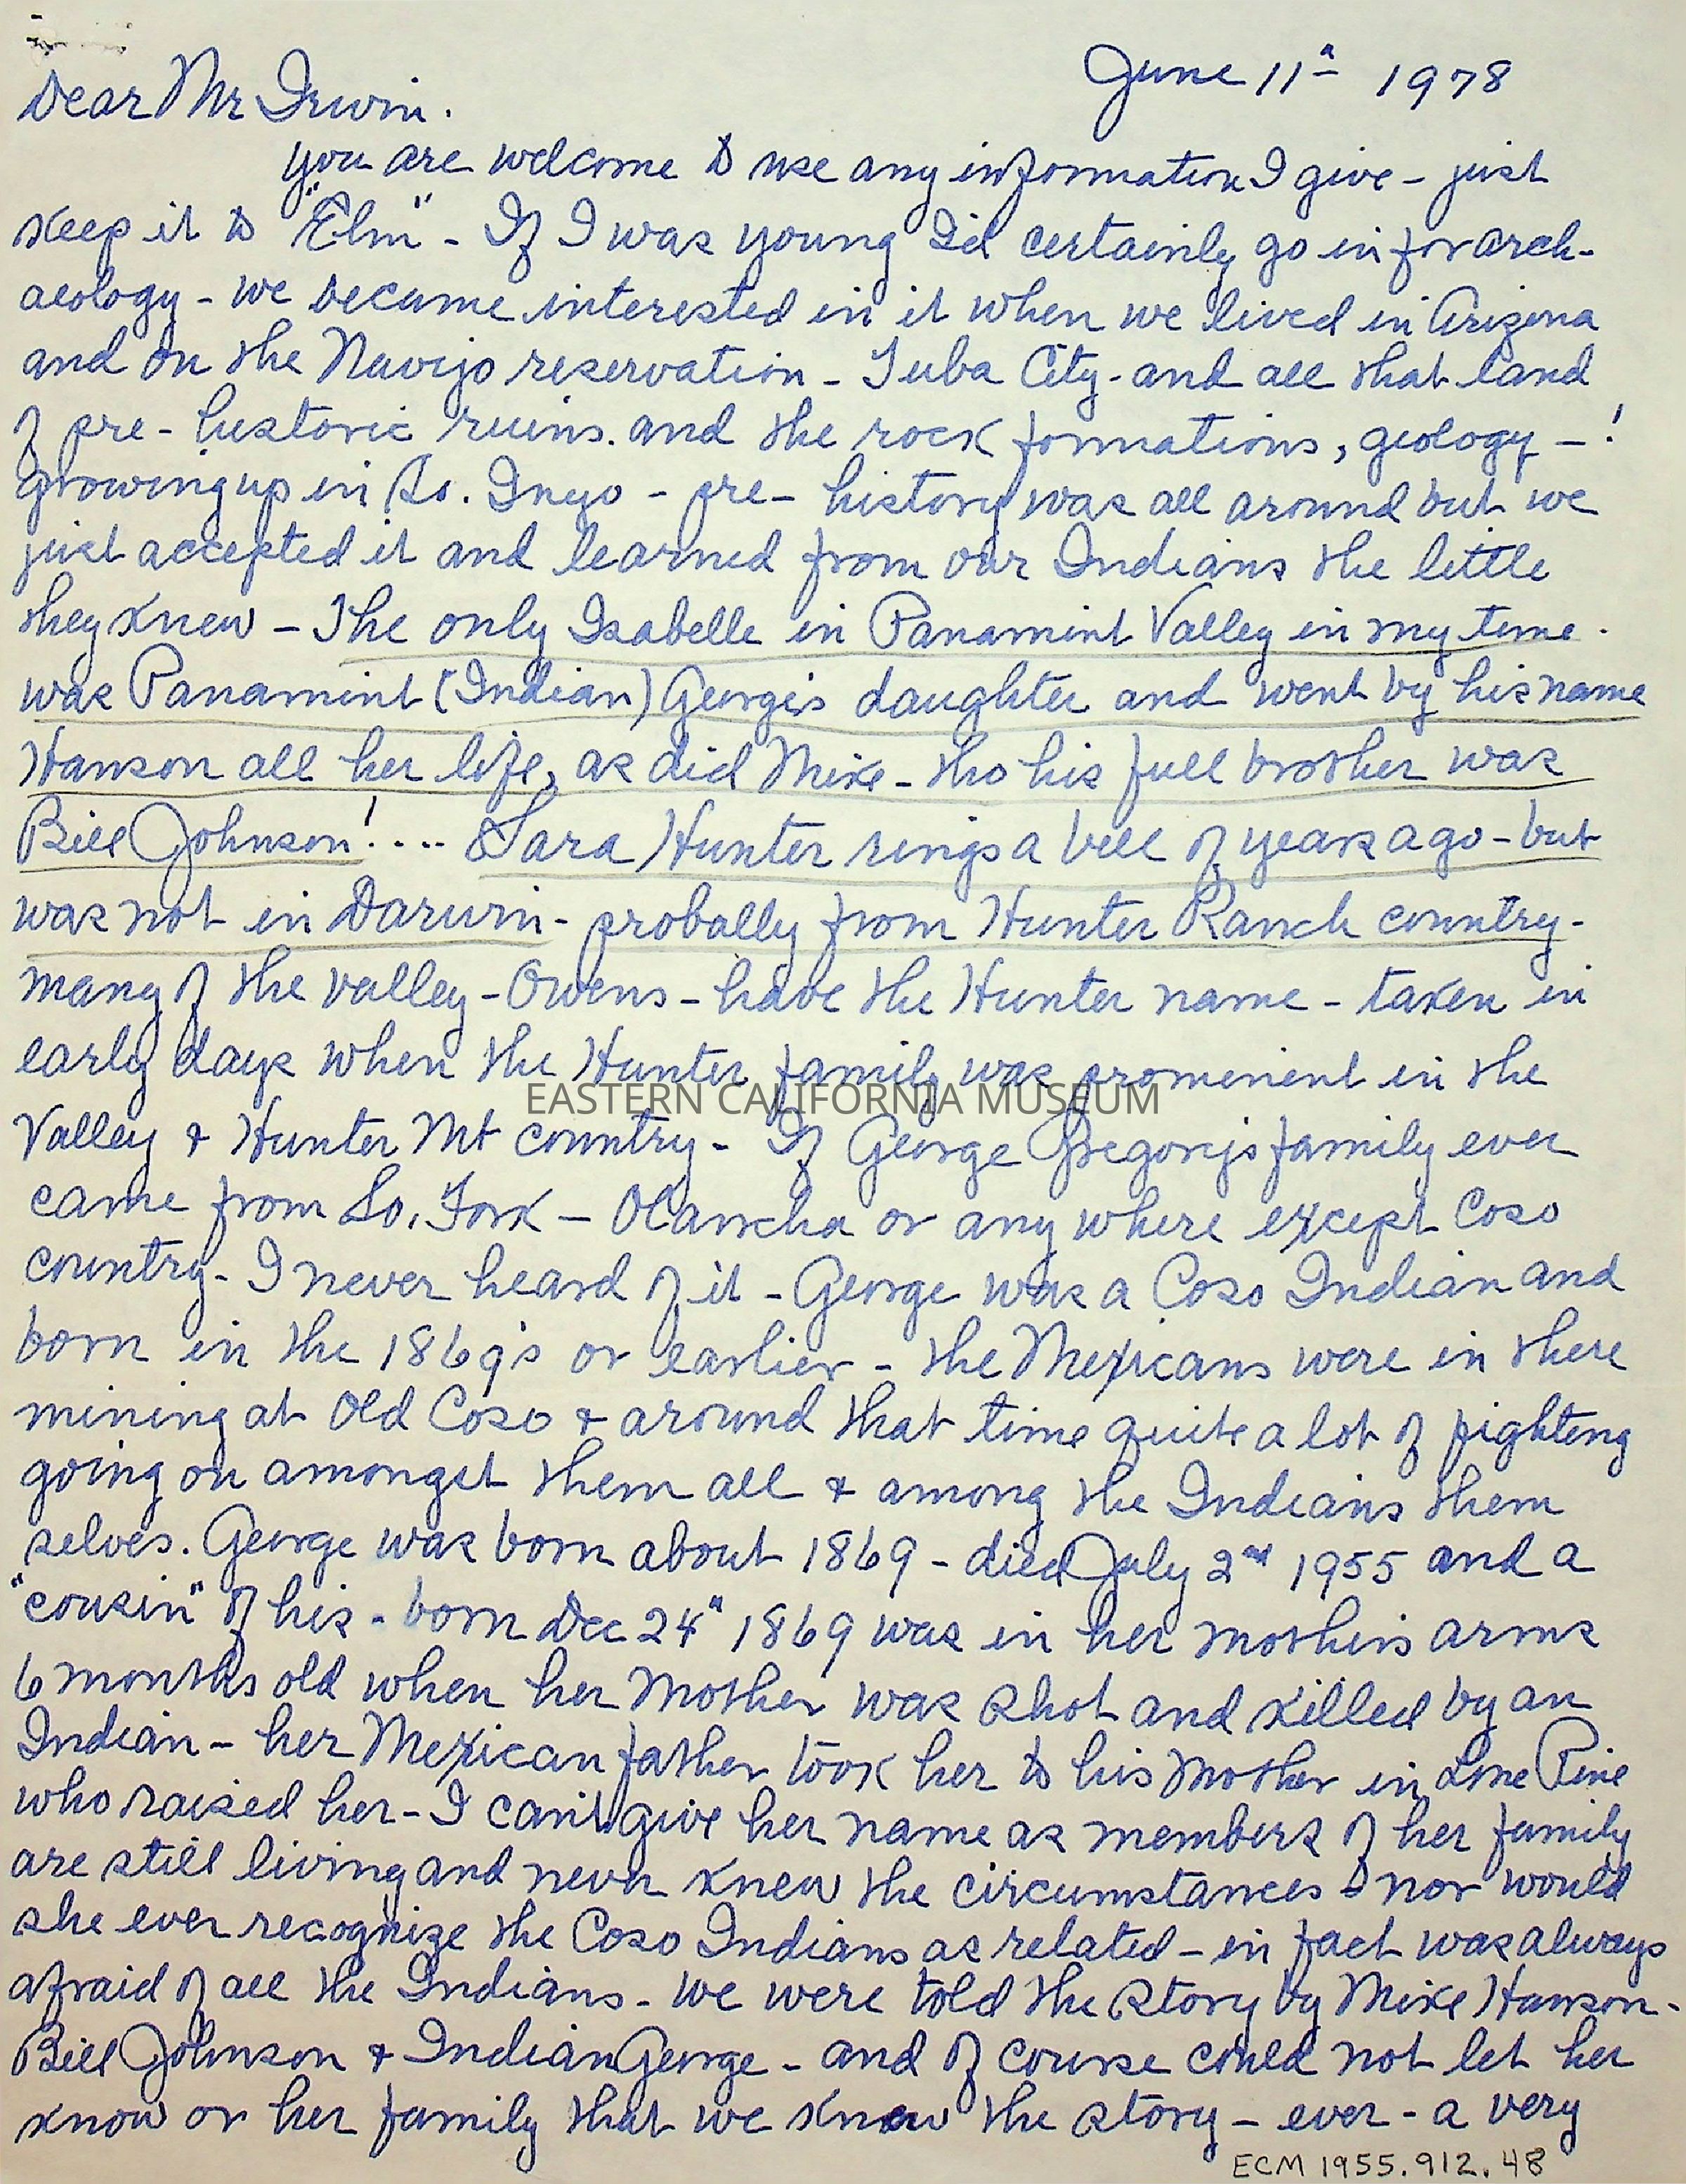 June 11th 1978
Dear Mr Irwin.
you are welcome to use any information I give - just
keep it to "Elm" - If I was young I'd certainly go in for arch-
aeology - we became interested in it when we lived in Arizona
and on the Navijo reservation - Tuba City - and all that land
of pre-historic ruins. and the rock formations, geology - !
Growing up in So. Inyo - pre-history was all around but we
just accepted it and learned from our Indians the little
they knew - The only Isabelle in Panamint Valley in my time.
was Panamint (Indian) George's daughter and went by his name
Hanson all her life, as did Mike - tho his full brother was
Bill Johnson! .... Sara Hunter rings a bell of years ago - but
was not in Darwin - probally from Hunter Ranch country -
many of the valley - Owens - have the Hunter name - taken in
early days when the Hunter family was prominent in the
EASTERN CALIFORNIA MUSEUM
Valley & Hunter Mt country - If George Gregory's family ever
came from So. Fork - Olancha or any where except Coso
country - I never heard of it - George was a Coso Indian and
born in the 1869's or earlier - the Mexicans were in there
mining at Old Coso & around that time quite a lot of fighting
going on amongst them all & among the Indians them
selves. George was born about 1869 - died July 2nd 1955 and a
"cousin" of his - born Dec 24th 1869 was in her mother's arms
6 months old when her Mother was shot and killed by an
Indian - her Mexican father took her to his Mother in Lone Pine
who raised her - I can't give her name as members of her family
are still living and never knew the circumstances & nor would
she ever recognize the Coso Indians as related - in fact was always
afraid of all the Indians - we were told the story by Mike Hanson -
Bill Johnson & Indian George - and of course could not let her
know or her family that we knew the story - ever - a very
ECM 1955.912.48